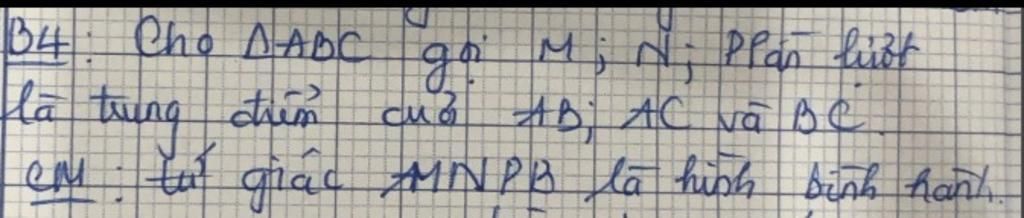 B4: Cho ΔABC gọi M; N; P lần lượt
là trung điểm của AB; AC và BC.
CM: tứ giác MNPB là hình bình hành.